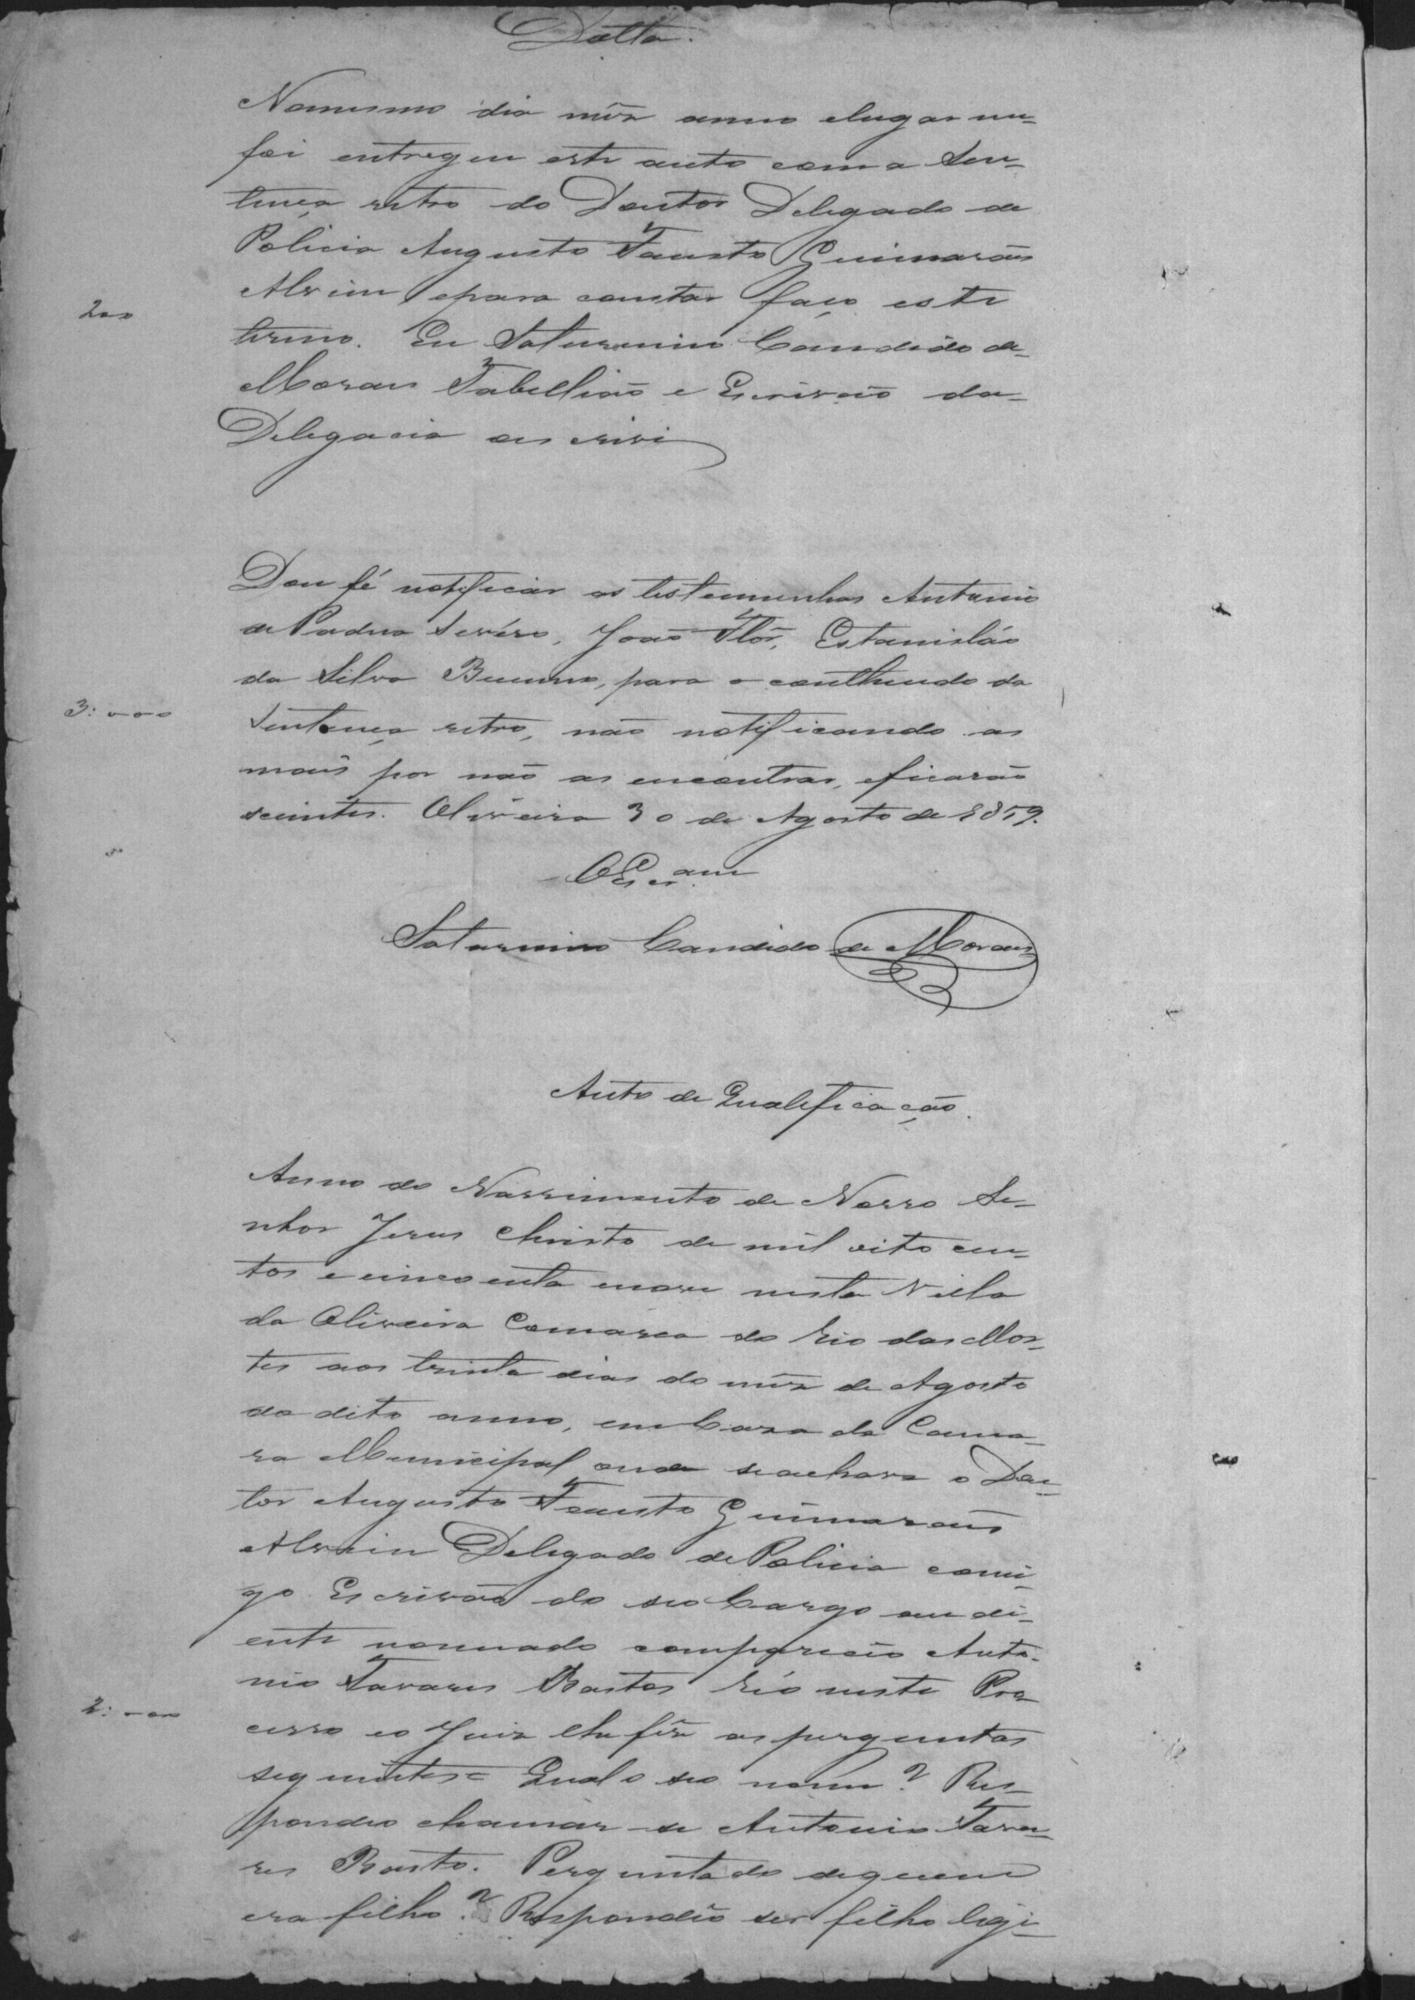 Datta.
Nomesmo dia mêz anno elugar me
foi entregue este auto com a Sen-
tença retro do Doutor Delegado de
Policia Augusto Fausto Guimarães
Alvim epara constar faço este
200
termo. Eu Saturnino Candido de
Moraes Tabellião e Escrivão da
Delegacia oescrivi
Dou fé notificar as testemunhas Antonio
de Padua Sevéro, João Flôr, Estanisláo
da Silva Bueno, para o contheudo da
3:000
Sentença retro, não notificando as
mais por não as encontrar, eficarão
scientes. Oliveira 30 de Agosto de 1859.
OEscram
Saturnino Candido de Moraes
Auto de Qualificação.
Anno do Nassimento de Nosso Se-
nhor Jesus Christo de mil oito cen-
tos e cincoenta enove nesta Villa
da Oliveira Comarca do Rio das Mor-
tes aos trinta dias do mêz de Agosto
do dito anno, em Caza da Cama-
ra Municipal onde seachava o Dou-
tor Augusto Fausto Guimarães
Alvim Delegado de Policia comi-
go Escrivão do seo Cargo aodi-
ente nomeado compareceo Anto-
nio Tavares Bastos Réo neste Pro-
2:000
cesso eo Juiz lhe fêz as perguntas
seguintes= Qual o seo nome? Res-
pondeo chamar-se Antonio Tava-
res Basto. Perguntado dequem
era filho? Respondêo ser filho legi-